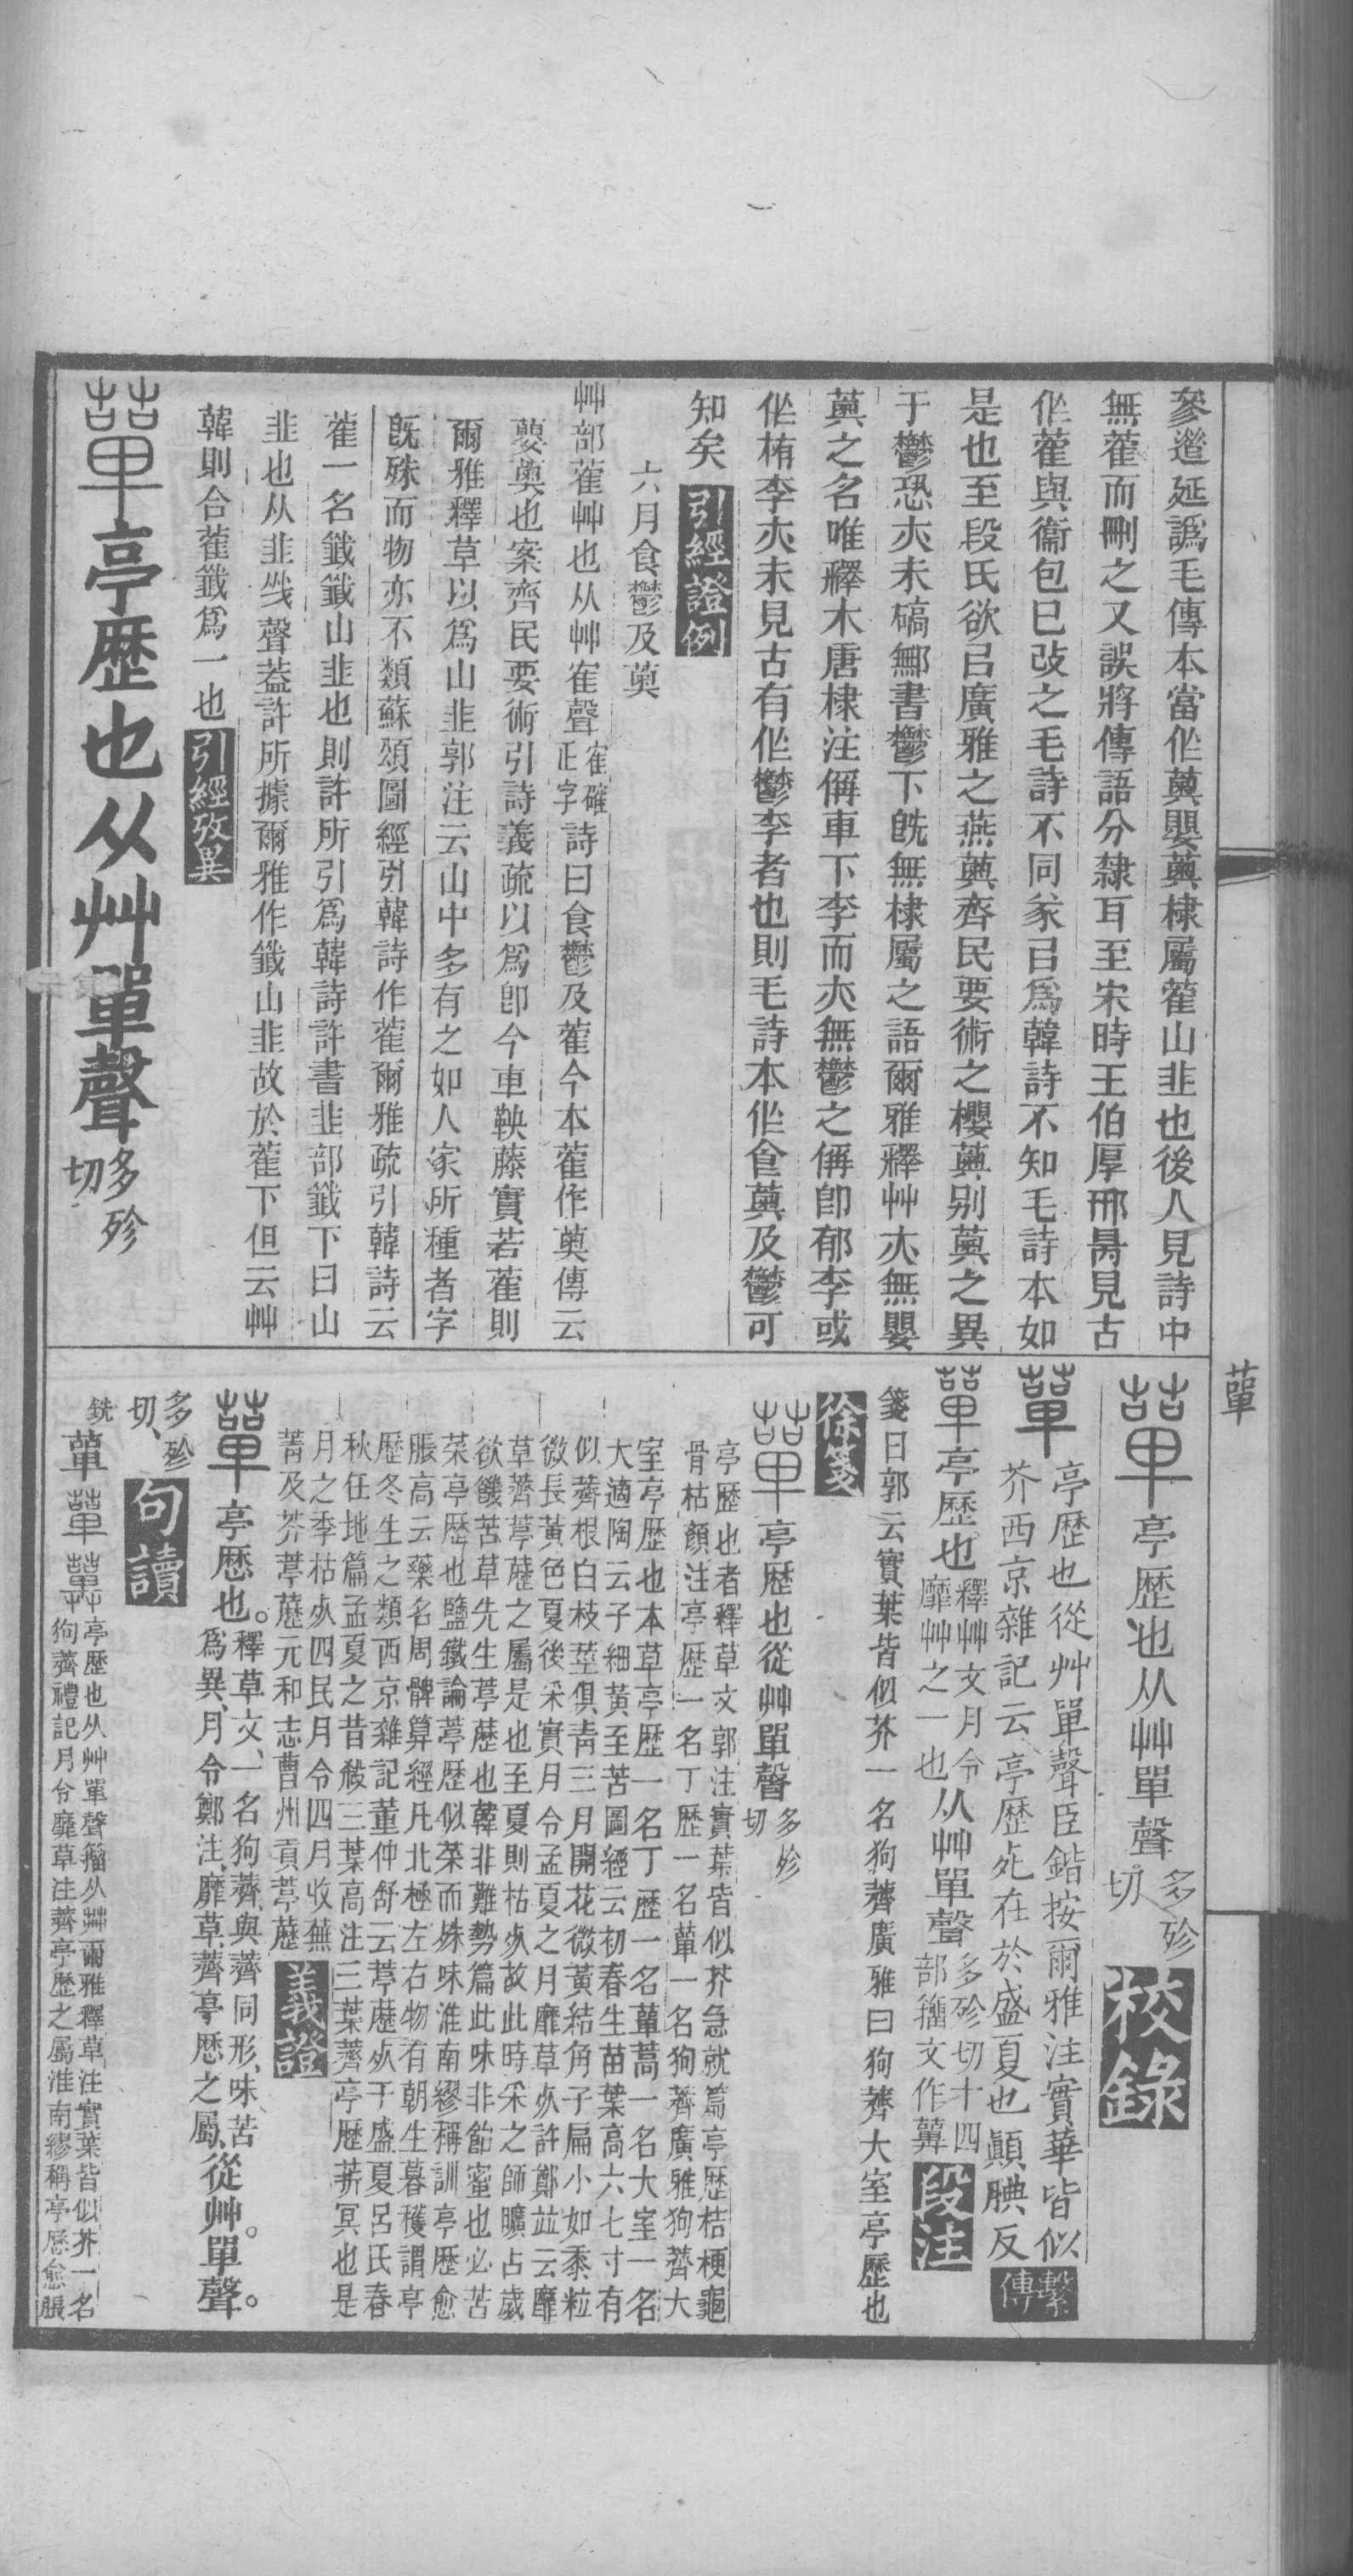 參遌延譌毛傳本當㐰薁嬰薁棣屬蒮山韭也後人見詩中
無蒮而刪之又誤將傳語分隸耳至宋時王伯厚邢昺見古
㐰蒮與衞包巳改之毛詩不同㒸㠯爲韓詩不知毛詩本如
是也至段氏欲㠯廣雅之燕薁齊民要術之櫻薁别薁之異
于鬱恐㚊未碻鄦書鬱下旣無棣屬之語爾雅釋艸㚊無嬰
薁之名唯釋木唐棣注偁車下李而㚊無鬱之偁卽郁李或
㐰栯李㚊未見古有㐰鬱李者也則毛詩本㐰食薁及鬱可
知矣 引經證例
六月食鬱及薁
艸部蒮艸也从艸寉聲 寉確正字 詩曰食鬱及蒮今本蒮作薁傳云
蘡薁也案齊民要術引詩義疏以爲卽今車鞅藤實若蒮則
爾雅釋草以爲山韭郭注云山中多有之如人家所種者字
旣殊而物亦不類蘇頌圖經引韓詩作蒮爾雅疏引韓詩云
蒮一名韱韱山韭也則許所引爲韓詩許書韭部韱下曰山
韭也从韭㦰聲葢許所據爾雅作韱山韭故於蒮下但云艸
韓則合蒮韱爲一也 引經攷異
蕇 亭歷也从艸單聲 多殄切
蕇
蕇 亭歷也从艸單聲 多殄切 校錄
蕇 亭歷也從艸單聲臣鍇按爾雅注實華皆似
芥西京雜記云亭歷死在於盛夏也顚腆反 繫傳
蕇 亭歷也 釋艸文月令靡艸之一也 从艸單聲 多殄切十四部籒文作 段注
箋曰郭云實葉皆似芥一名狗薺廣雅曰狗薺大室亭歷也
徐箋
蕇 亭歷也從艸單聲 多殄切
亭歷也者釋草文郭注實葉皆似芥急就篇亭歷桔梗龜
骨枯顏注亭歷一名丁歷一名蕇一名狗薺廣雅狗薺大
室亭歷也本草亭歷一名丁歷一名蕇蒿一名大室一名
大適陶云子細黃至苦圖經云初春生苗葉高六七寸有
似薺根白枝莖俱靑三月開花微黃結角子扁小如黍粒
微長黃色夏後采實月令孟夏之月靡草死許鄭竝云靡
草薺葶藶之屬是也至夏則枯死故此時采之師曠占歲
欲饑苦草先生葶藶也韓非難勢篇此味非飴蜜也必苦
菜亭歷也鹽鐵論葶歷似菜而殊味淮南繆稱訓亭歷愈
脹高云藥名周髀算經凡北極左右物有朝生暮穫謂亭
歷冬生之類西京雜記董仲舒云葶藶死于盛夏呂氏春
秋任地篇孟夏之昔殺三葉高注三葉薺亭歷菥冥也是
月之季枯死四民月令四月收蕪
菁及芥葶藶元和志曹州貢葶藶 義證
蕇 亭歷也。釋草文、一名狗薺、與薺同形、味苦
爲異、月令鄭注、靡草、薺亭歷之屬、從艸。單聲。
多殄切、 句讀
銑 蕇 亭歷也从艸單聲籒从茻爾雅釋草注實葉皆似芥一名
狗薺禮記月令靡草注薺亭歷之屬淮南繆稱亭歷愈脹